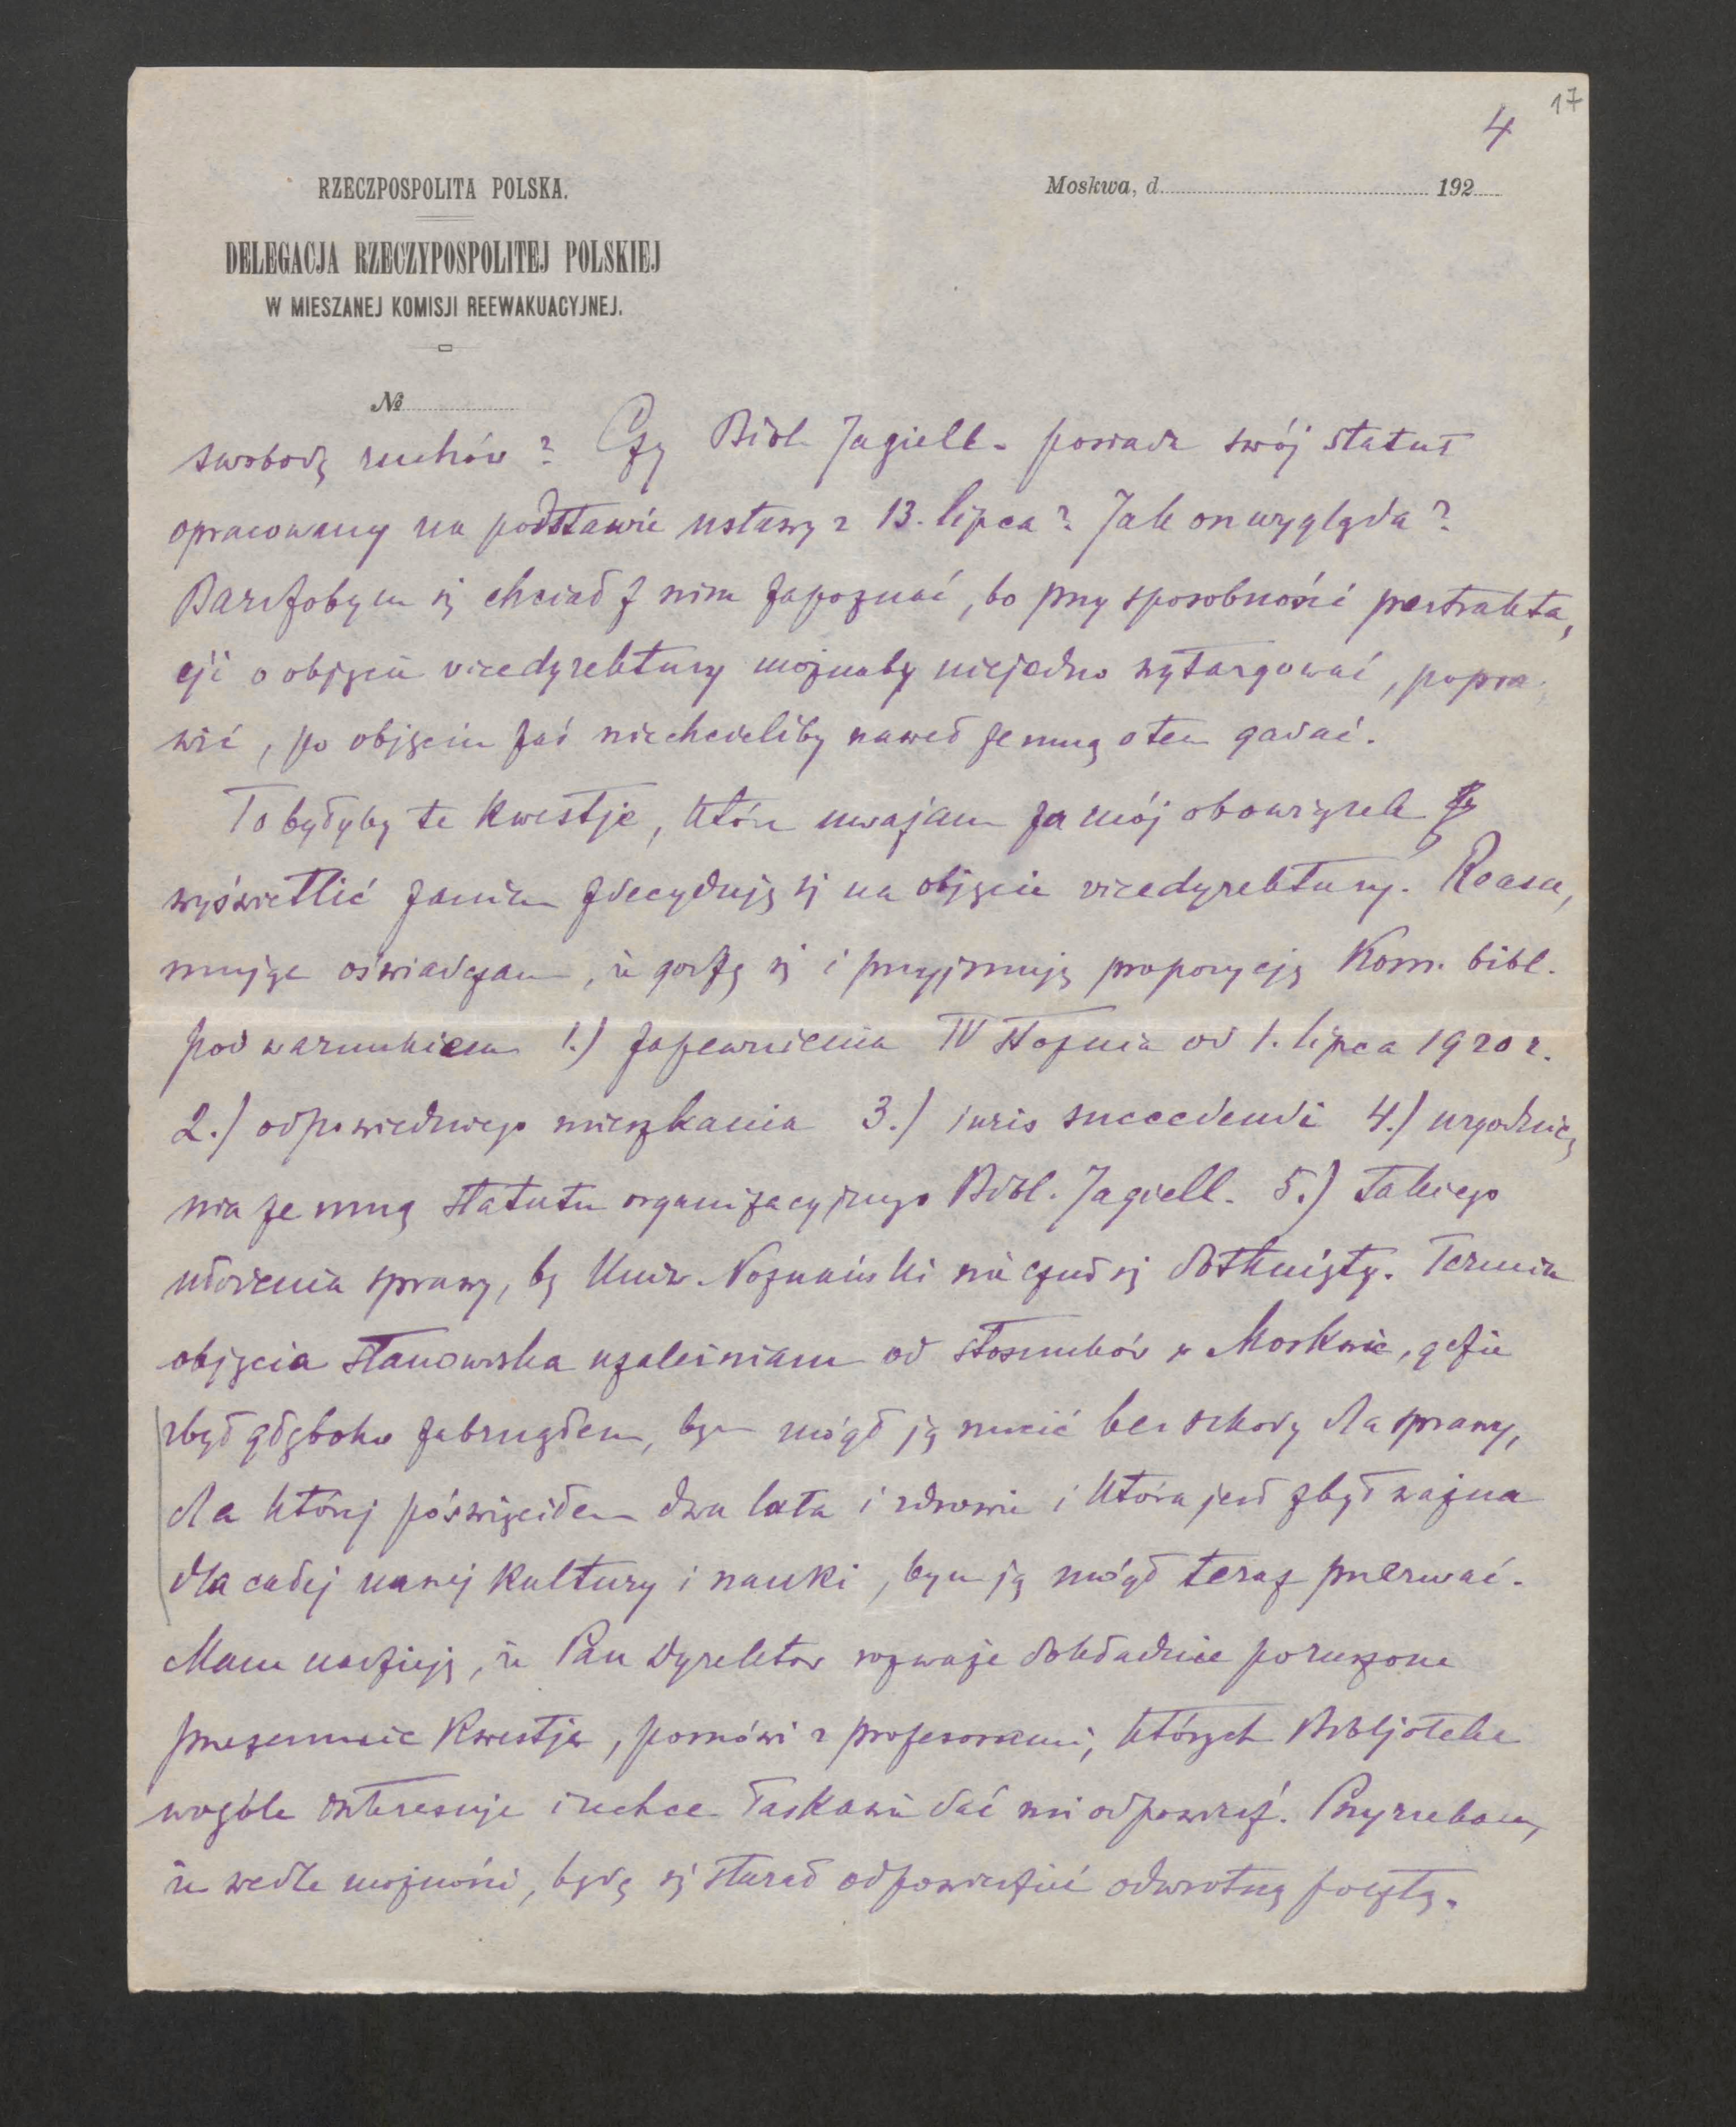 17
4
RZECZPOSPOLITA POLSKA.
Moskwa, d. 192
DELEGACJA RZECZYPOSPOLITEJ POLSKIEJ
W MIESZANEJ KOMISJI REEWAKUACYJNEJ.
№
swobodę ruchów? Czy Bibl. Jagiell. posiada swój statut
opracowany na podstawie ustawy z 13. lipca? Jak on wygląda?
Bardzobym się chciał z nim zapoznać, bo przy sposobności pertrakta,
cji o objęcie vicedyrektury możnaby niejedno wytargować, popra,
wić, po objęciu zaś niechcieliby nawet ze mną o tem gadać.
To byłyby te kwestje, które uważam za mój obowiązek
wyświetlić zanim zdecyduję się na objęcie vicedyrektury. Reasu,
mując oświadczam, że godzę się i przyjmuję propozycję Kom. bibl.
pod warunkiem 1.) zapewnienia IV stopnia od 1. lipca 1920 r.
2.) odpowiedniego mieszkania 3.) iuris succedendi 4.) uzgodnie,
nia ze mną statutu organizacyjnego Bibl. Jagiell. 5.) takiego
ułożenia sprawy, by Uniw. Poznański nie czuł się dotknięty. Termin
objęcia stanowiska uzależniam od stosunków w Moskwie, gdzie
zbyt głęboko zabrnąłem, bym mógł ją rzucić bez szkody dla sprawy,
dla której poświęciłem dwa lata i zdrowie i która jest zbyt ważna
dla całej naszej kultury i nauki, bym ją mógł teraz przerwać.
Mam nadzieję, że Pan Dyrektor rozważe dokładnie poruszone
przezemnie kwestje, pomówi z profesorami, których Bibljoteka
wogóle interesuje i zechce łaskawie dać mi odpowiedź. Przyrzekam,
że wedle możności, będę się starał odpowiedzieć odwrotną pocztą.